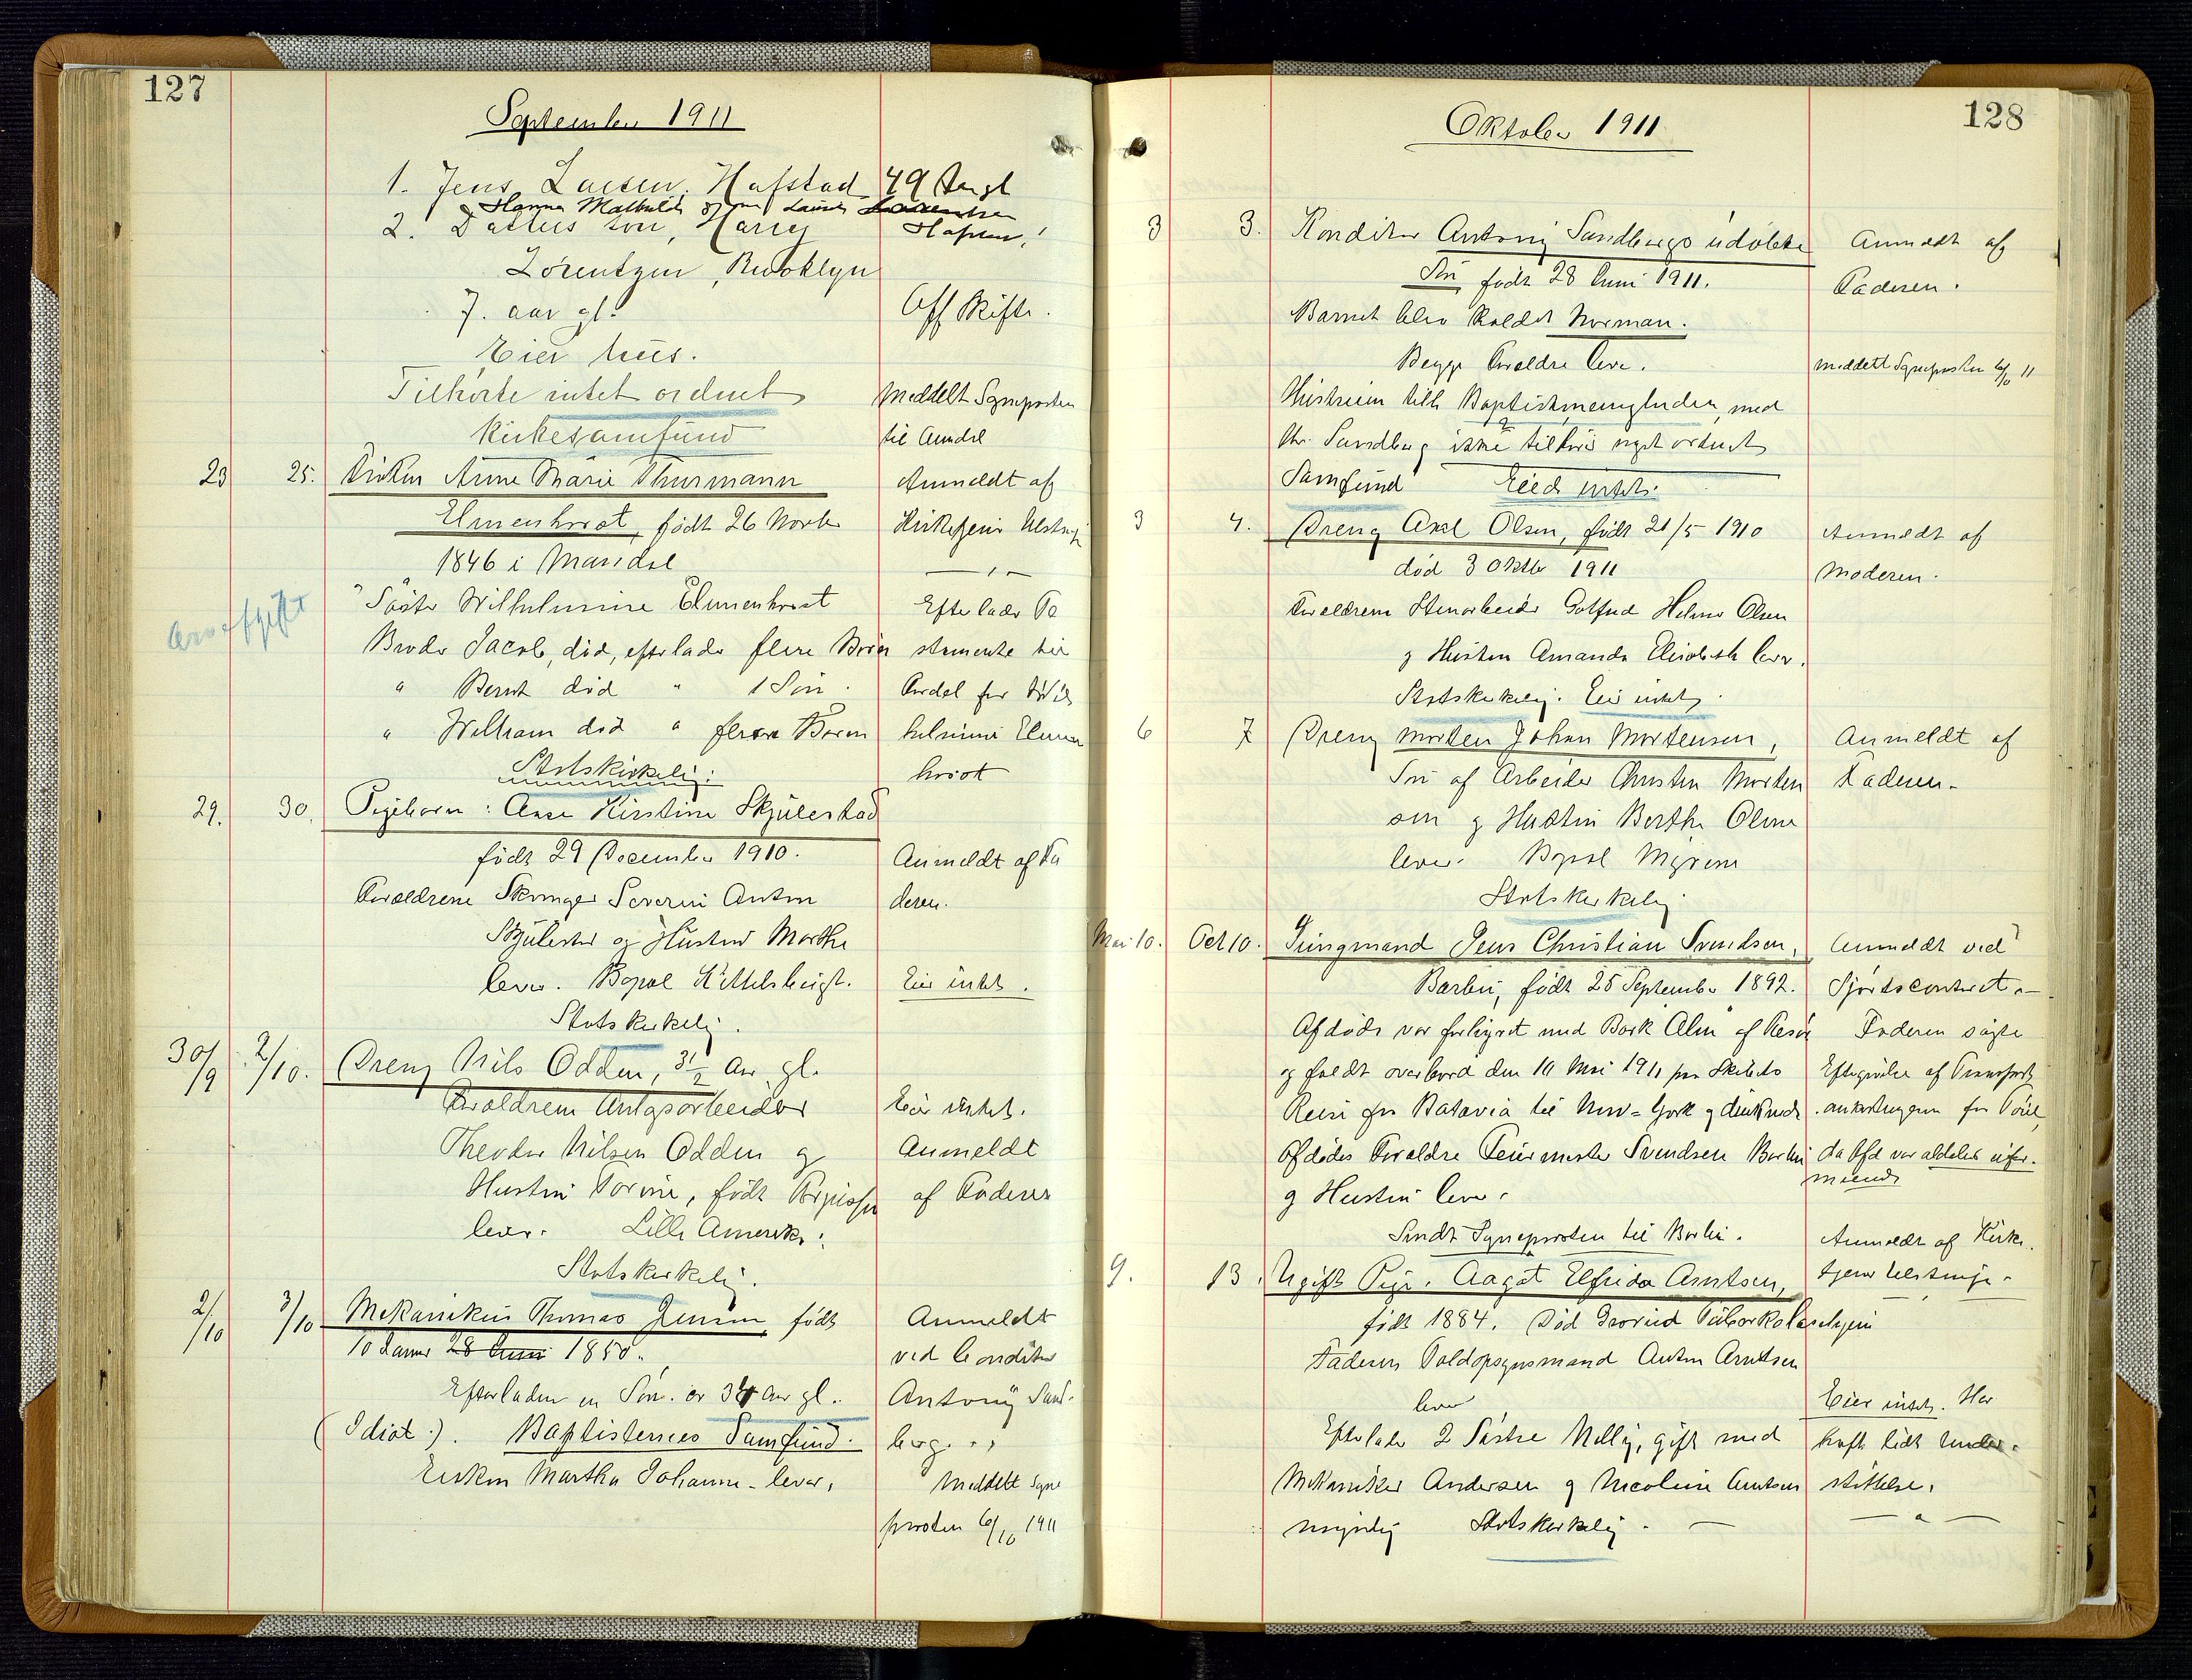 127
September 1911
1. Jens Larsen, Hafstad 49 Aar gl
Hanna Mathilde
2. Datters søn, Harry
Lorentzen, Brooklyn
7. aar gl.
Off Skifte.
Eier hus.
Tilhørte intet ordnet
kirkesamfund
Meddelt Sogneprsten
til Arndal
23 25. Frøken Anne Marie Thurmann
Elmenhorst, født 26 Novbr
1846 i Mandal
Anmeldt af
Kirketjener Ulstrup
Søster Wilhelmine Elmenhorst
Broder Jacob, død, efterlader flere Børn
" Bernt død " 1 Søn.
" William død " flere Børn
Statskirkelig.
Efterlader Te
stamente til
Fordel for Wil
helmine Elmen
horst
Arveafgift
29. 30. Pigebarn: Aase Kirstine Skjulestad
født 29 December 1910.
Forældrene Severin Anton
Skjulestad og Hustru Marthe
lever. Bopæl Kittelsbugt.
Statskirkelig.
Anmeldt af Fa
deren.
Eier intet.
30/9 2/10. Dreng Nils Odden, 3 1/2 Aar gl.
Forældrene Anlægsarbeider
Theodor Nilsen Odden og
Hustru Torine, født Torjussen
lever. Lille Amerika.
Statskirkelig.
Eier intet.
Anmeldt
af Faderen
2/10 3/10 Mekanikus Thomas Jensen, født
10 Januar 28 Juni 1850.
Efterlader en Søn. er 34 Aar gl.
(Idiot.). Baptisternes Samfund.
Enken Martha Johanne lever.
Anmeldt
ved Conditor
Antony Sand-
berg.
Meddelt Sogne
prosten 6/10 1911
128
Oktober 1911
3 3. Konditor Antony Sandbergs udøbte
Søn, født 28 Juni 1911.
Barnet blev kaldt Norman.
Begge Forældre lever.
Hustruen tilh Baptistmenigheden, med
Hr. Sandberg ikke tilhører noget ordnet
Samfund Eied intet.
Anmeldt af
Faderen.
meddelt Sogneprosten 6/10 11
3 4. Dreng Axel Olsen, født 21/5 1910
død 3 Oktbr 1911
Forældrene Stenarbeider Gotfred Helmer Olsen
og Hustru Amanda Elisabeth lever.
Statskirkelig. Eier intet.
Anmeldt af
Moderen.
6 7 Dreng Morten Johan Mortensen,
Søn af Arbeider Christen Morten
sen og Hustru Berthe Oline
lever. Bopæl Myrene
Statskirkelig
Anmeldt af
Faderen.
Mai 10. Oct 10. Ungmand Jens Christian Svendsen,
Barbu, født 25 September 1892.
Afdøde var forhyret med Bark Alm af Risør
og faldt overbord den 10 Mai 1911 paa Skibets
Reise fra Batavia til New-York og druknede.
Afdødes Forældre Feiermester Svendsen Barbu
og Hustru lever.
Sendt Sogneprosten til Barbu.
Anmeldt ved
Sjørdscontoret.
Faderen søgte
Eftergivelse af
da Afd var aldeles ufor-
muende
9. 13. Ugift Pige. Aagot Elfrida Arntsen,
født 1884. Død Tuberkolosehjem
Faderen Toldopsynsmand Anton Arntsen
lever
Efterlader 2 Søstre Nelly, gift med
Mekaniker Andersen og Nicoline Arntsen
myndig Statskirkelig.
Anmeldt af Kirke-
tjener Ulstrup.
Eier intet. Har
havt lidt Under-
støttelse.